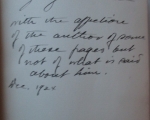 with the affections
of the author of some
of these pages but
not of what is said
about him.
Dec. 192